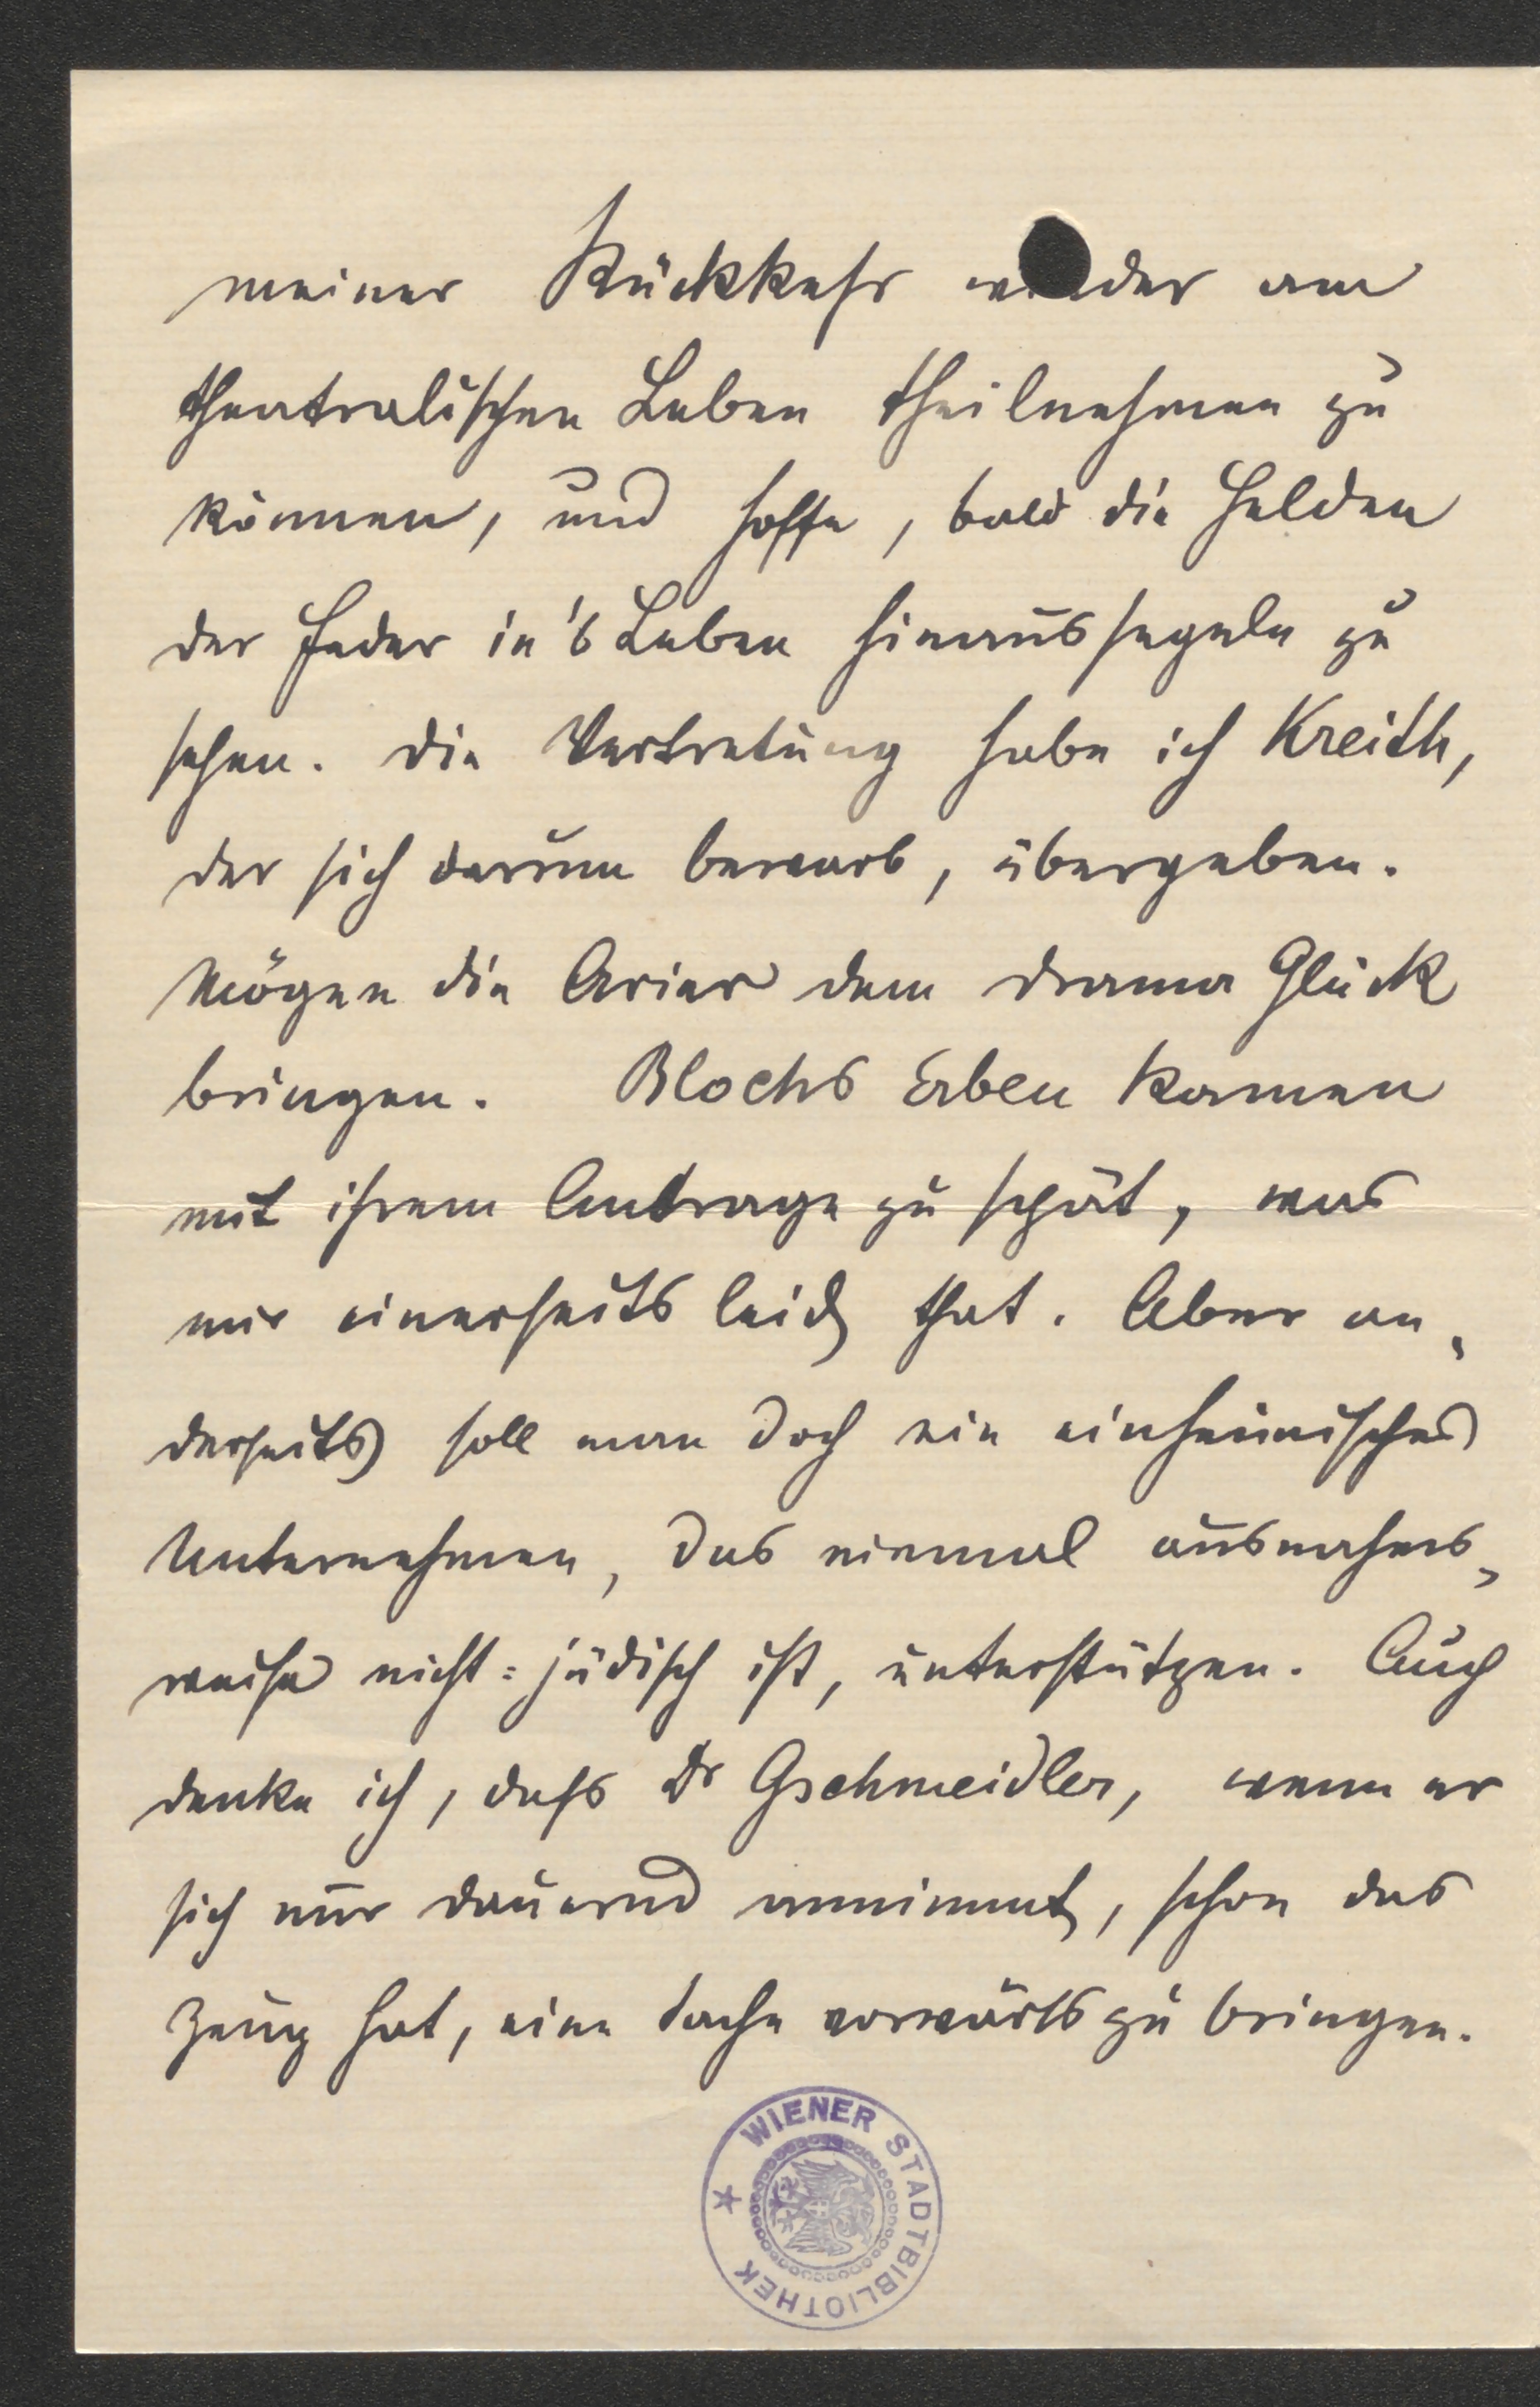 meiner Rückkehr wieder am
theatralischen Leben theilnehmen zu
können, und hoffe, bald die Helden
der Feder in's Leben hinaussegeln zu
sehen. Die Vertretung habe ich Kreith,
der sich darum bewarb, übergeben.
Mögen die Arier dem Drama Glück
bringen. Blochs Erben kamen
mit ihrem Antrage zu spät, was
mir einerseits leid that. Aber an-
derseits soll man doch ein einheimisches
Unternehmen, das einmal ausnahms-
weise nicht=jüdisch ist, unterstützen. Auch
denke ich, dass Dr Gschmeidler, wenn er
sich nur dauernd annimmt, schon das
Zeug hat, eine Sache vorwärts zu bringen.
WIENER STADTBIBLIOTHEK